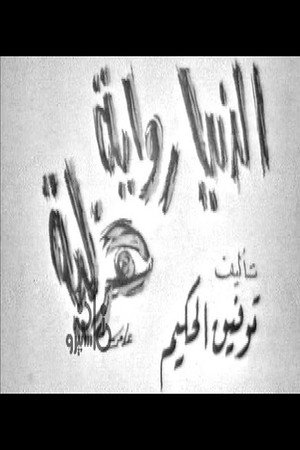 الدنيا رواية
هزلية
تأليف
توفيق الحكيم